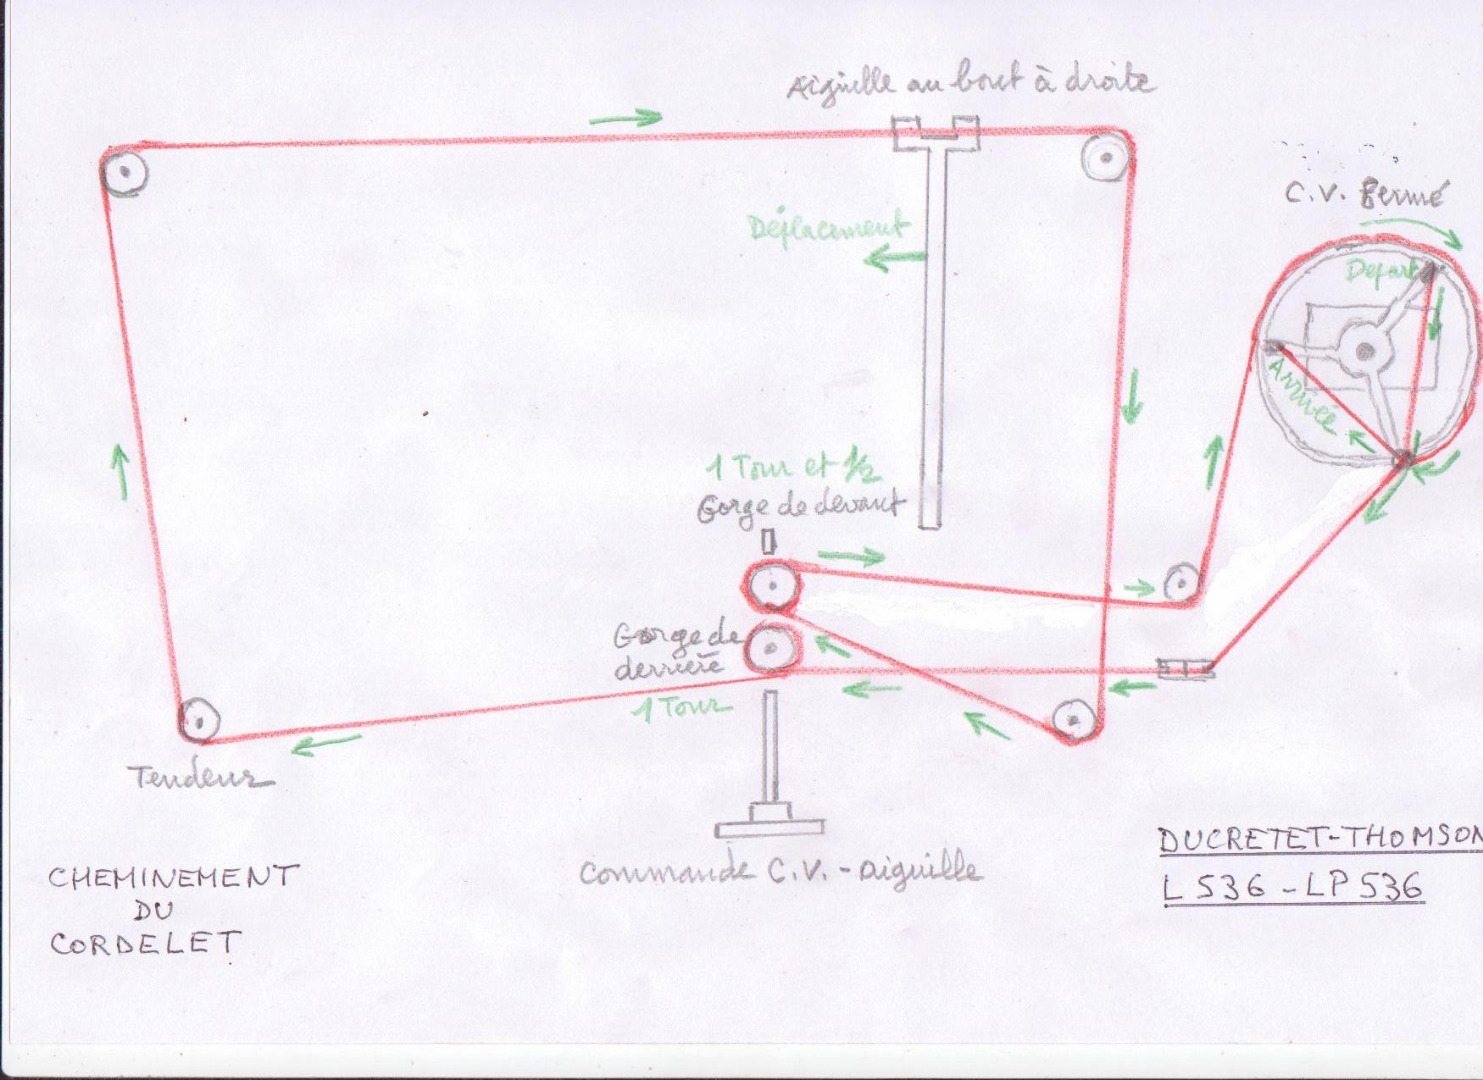 Aiguille au bout à droite
C.V. Fermé
Déplacement
Depart
Arrivée
1 Tour et 1/2
Gorge de devant
Gorge de
derrière
1 Tour
Tendeur
Commande C.V. - Aiguille
CHEMINEMENT
DU
CORDELET
DUCRETET-THOMSON
L 536 - LP 536